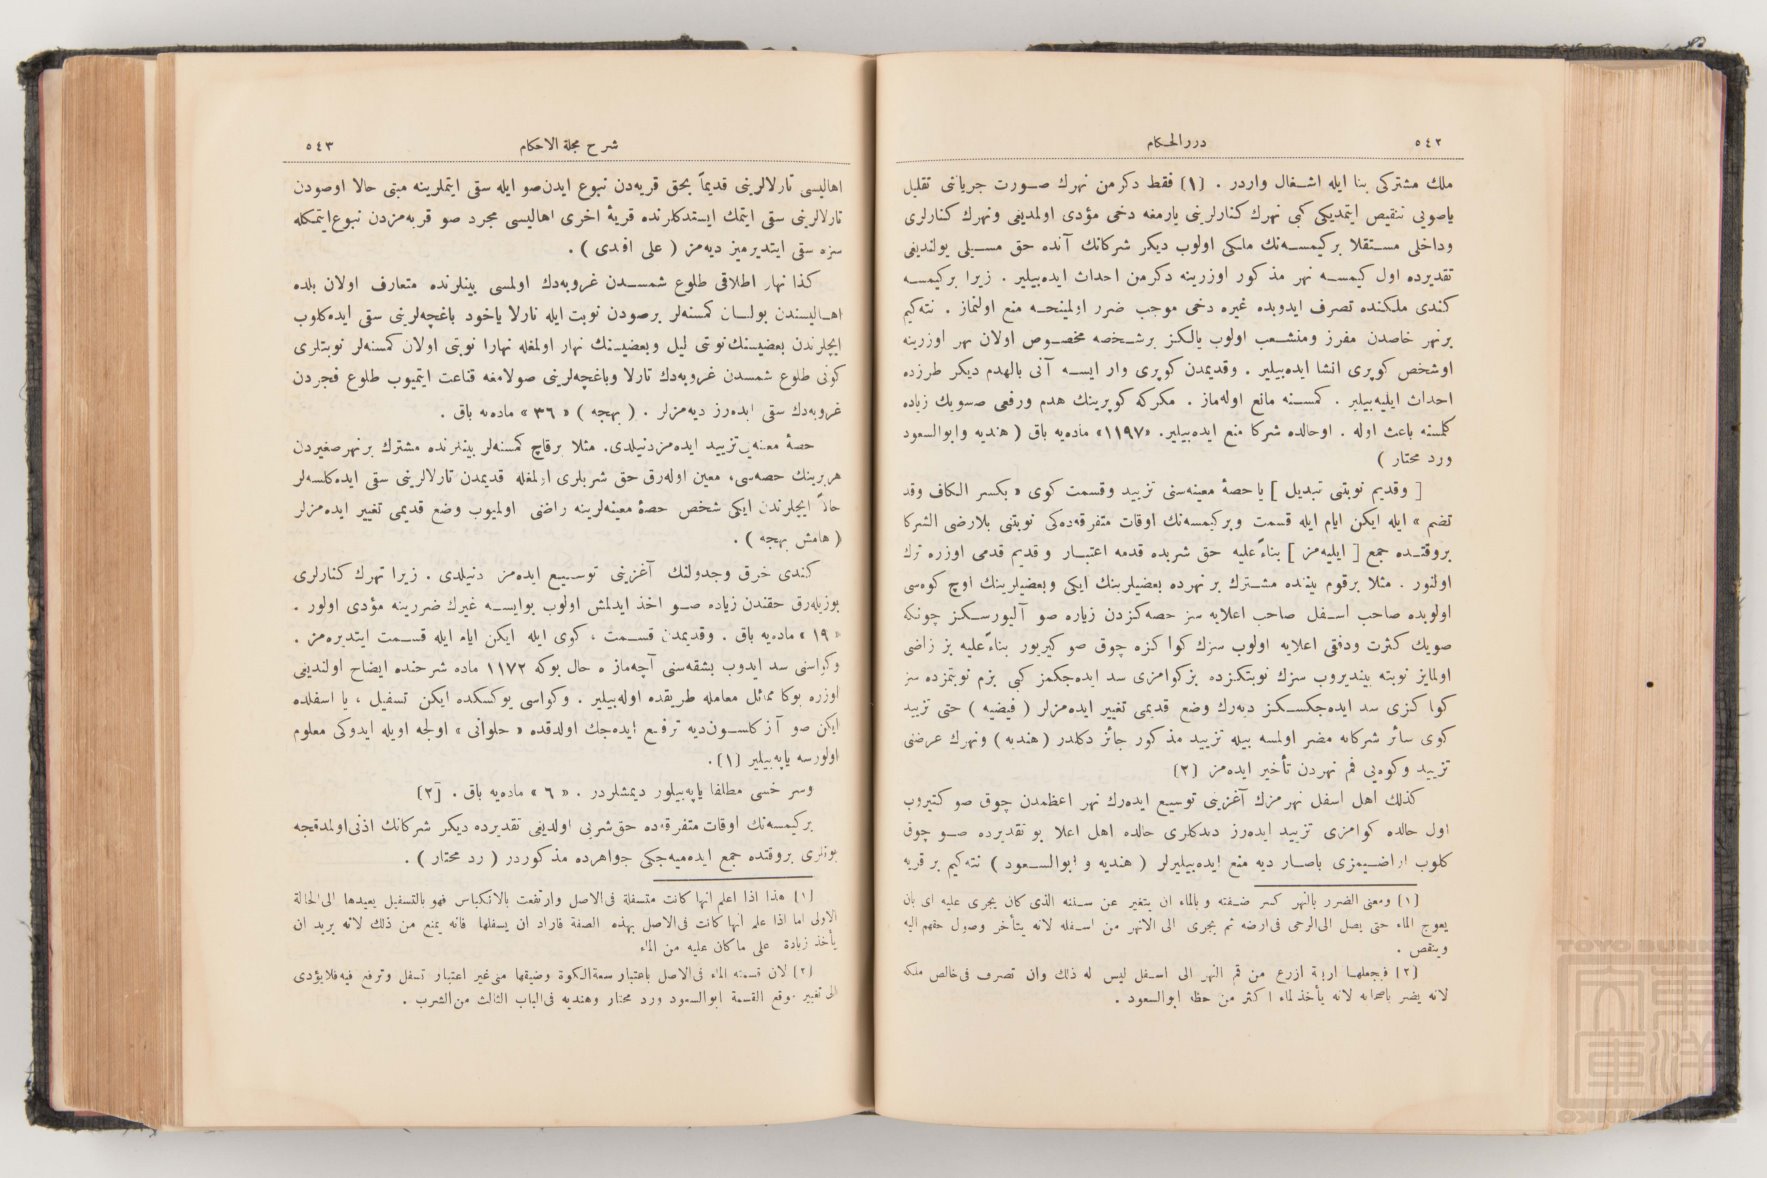 ٥٤٢
دررالحكام
ملك مشتركى بنا ايله اشغال واردر . [١] فقط دكرمن نهرك صورت جرياننى تقليل
ياصويى تنقيص ايتمديكى كبى نهرك كنارلرينى يارمغه دخى مؤدى اولمديغى ونهرك كنارلرى
وداخلى مستقلا بركيمسه‌نك ملكى اولوب ديكر شركانك آنده حق مسيلى بولنديغى
تقديرده اول كيمسه نهر مذكور اوزرينه دكرمن احداث ايده‌بيلير . زيرا بركيمسه
كندى ملكنده تصرف ايدوبده غيره دخى موجب ضرر اولمينجه منع اولنماز . نته‌كيم
برنهر خاصدن مفرز ومنشعب اولوب يالكز برشخصه مخصوص اولان نهر اوزرينه
اوشخص كوپرى انشا ايده‌بيلير . وقديمدن كوپرى وار ايسه آنى بالهدم ديكر طرزده
احداث ايليه‌بيلير . كمسنه مانع اوله‌ماز . مكركه كوپرينك هدم ورفعى صويك زياده
كلمسنه باعث اوله . اوحالده شركا منع ايده‌بيلير. «١١٩٧» ماده‌يه باق ( هنديه وابوالسعود
ورد محتار )
[ وقديم نوبتى تبديل ] يا حصهٔ معينه‌سنى تزييد وقسمت كوى « بكسر الكاف وقد
تضم » ايله ايكن ايام ايله قسمت وبركيمسه‌نك اوقات متفرقه‌ده‌كى نوبتنى بلارضى الشركا
بروقتده جمع [ ايليه‌مز ] بناءً عليه حق شربده قدمه اعتبار وقديم قدمى اوزره ترك
اولنور . مثلا برقوم بيننده مشترك برنهرده بعضيلرينك ايكى وبعضيلرينك اوچ كوه‌سى
اولوبده صاحب اسفل صاحب اعلايه سز حصه‌كزدن زياره صو آليورسكز چونكه
صويك كثرت ودفقى اعلايه اولوب سزك كواكزه چوق صو كيريور بناءً عليه بز راضى
اولمايز نوبته بينديروب سزك نوبتكزده بزكوامزى سد ايده‌جكمز كبى بزم نوبتمزده سز
كواكزى سد ايده‌جكسكز ديه‌رك وضع قديمى تغيير ايده‌مزلر ( فيضيه ) حتى تزييد
كوى سائر شركايه مضر اولمسه بيله تزييد مذكور جائز دكلدر ( هنديه ) ونهرك عرضنى
تزييد وكوه‌يى فم نهردن تأخير ايده‌مز [٢]
كذلك اهل اسفل نهرمزك آغزينى توسيع ايده‌رك نهر اعظمدن چوق صو كتيروب
اول حالده كوامزى تزييد ايده‌رز ديدكلرى حالده اهل اعلا بو تقديرده صو چوق
كلوب اراضيمزى باصار ديه منع ايده‌بيليرلر ( هنديه و ابوالسعود ) نته‌كيم بر قريه
[١] ومعنى الضرر بالنهر كسر ضفته و بالماء ان يتغير عن سننه الذى كان يجرى عليه اى بان
يعوج الماء حتى يصل الى الرحى فى ارضه ثم يجرى الى الانهر من اسفله لانه يتأخر وصول حقهم اليه
وينقص .
[٢] فيجعلها اربعة ازرع من فم النهر الى اسفل ليس له ذلك وان تصرف فى خالص ملكه
لانه يضر باصحابه لانه يأخذ لماء اكثر من حظه ابوالسعود .
شرح مجلة الاحكام
٥٤٣
اهاليسى تارلالرينى قديماً بحق قريه‌دن نبوع ايدن صو ايله سقى ايتملرينه مبنى حالا اوصودن
تارلالرينى سقى ايتمك ايستدكلرنده قريهٔ اخرى اهاليسى مجرد صو قريه‌مزدن نبوع ايتمكله
سزه سقى ايتديرميز ديه‌مز ( على افندى ) .
كذا نهار اطلاقى طلوع شمسدن غروبه‌دك اولمسى بينلرنده متعارف اولان بلده
اهاليسندن بولنان كمسنه‌لر برصودن نوبت ايله تارلا ياخود باغچه‌لرينى سقى ايده‌كلوب
ايچلرندن بعضيسنك نوبتى ليل وبعضيسنك نهار اولمغله نهارا نوبتى اولان كمسنه‌لر نوبتلرى
كونى طلوع شمسدن غروبه‌دك تارلا وباغچه‌لرينى صولامغه قناعت ايتميوب طلوع فجردن
غروبه‌دك سقى ايده‌رز ديه‌مزلر . ( بهجه ) « ٣٦ » ماده‌يه باق .
حصهٔ معينه‌يى تزييد ايده‌مز دنيلدى. مثلا برقاچ كمسنه‌لر بينلرنده مشترك برنهر صغيردن
هربرينك حصه‌سى، معين اوله‌رق حق شربلرى اولمغله قديمدن تارلالرينى سقى ايده‌كلسه‌لر
حالاً ايچلرندن ايكى شخص حصهٔ معينه‌لرينه راضى اولميوب وضع قديمى تغيير ايده‌مزلر
( هامش بهجه ) .
كندى خرق وجدولنك آغزينى توسيع ايده‌مز دنيلدى . زيرا نهرك كنارلرى
بوزيله‌رق حقندن زياده صو اخذ ايدلمش اولوب بوايسه غيرك ضررينه مؤدى اولور .
« ١٩ » ماده‌يه باق . وقديمدن قسمت ، كوى ايله ايكن ايام ايله قسمت ايتديره‌مز .
وكواسنى سد ايدوب بشقه‌سنى آچه‌ماز ه حال بوكه ١١٧٢ ماده شرحنده ايضاح اولنديغى
اوزره بوكا مماثل معامله طريقده اوله‌بيلير . وكواسى يوكسكده ايكن تسفيل ، يا اسفلده
ايكن صو آز كلسون ديه ترفيع ايده‌جك اولدقده « حلوانى » اولجه اويله ايدوكى معلوم
اولورسه ياپه‌بيلير [١].
وسرخسى مطلقا ياپه‌بيلور ديمشلردر . « ٦ » ماده‌يه باق . [٢]
بركيمسه‌نك اوقات متفرقه‌ده حق شربى اولديغى تقديرده ديكر شركانك اذنى اولمدقجه
بونلرى بروقتده جمع ايده‌ميه‌جكى جواهرده مذكوردر ( رد محتار ) .
[١] هذا اذا اعلم انها كانت متسفلة فى الاصل وارتفعت بالانكباس فهو بالتسفيل يعيدها الى الحالة
الاولى اما اذا علم انها كانت فى الاصل بهذه الصفة فاراد ان يسفلها فانه يمنع من ذلك لانه يريد ان
يأخذ زيادة على ما كان عليه من الماء
[٢] لان قسمته الماء فى الاصل باعتبار سعة الكوة وضيقها من غير اعتبار تسفل وترفع فيه فلا يؤدى
الى تغيير موقع القسمة ابوالسعود ورد محتار وهنديه فى الباب الثالث من الشرب .
TOYO BUNKO